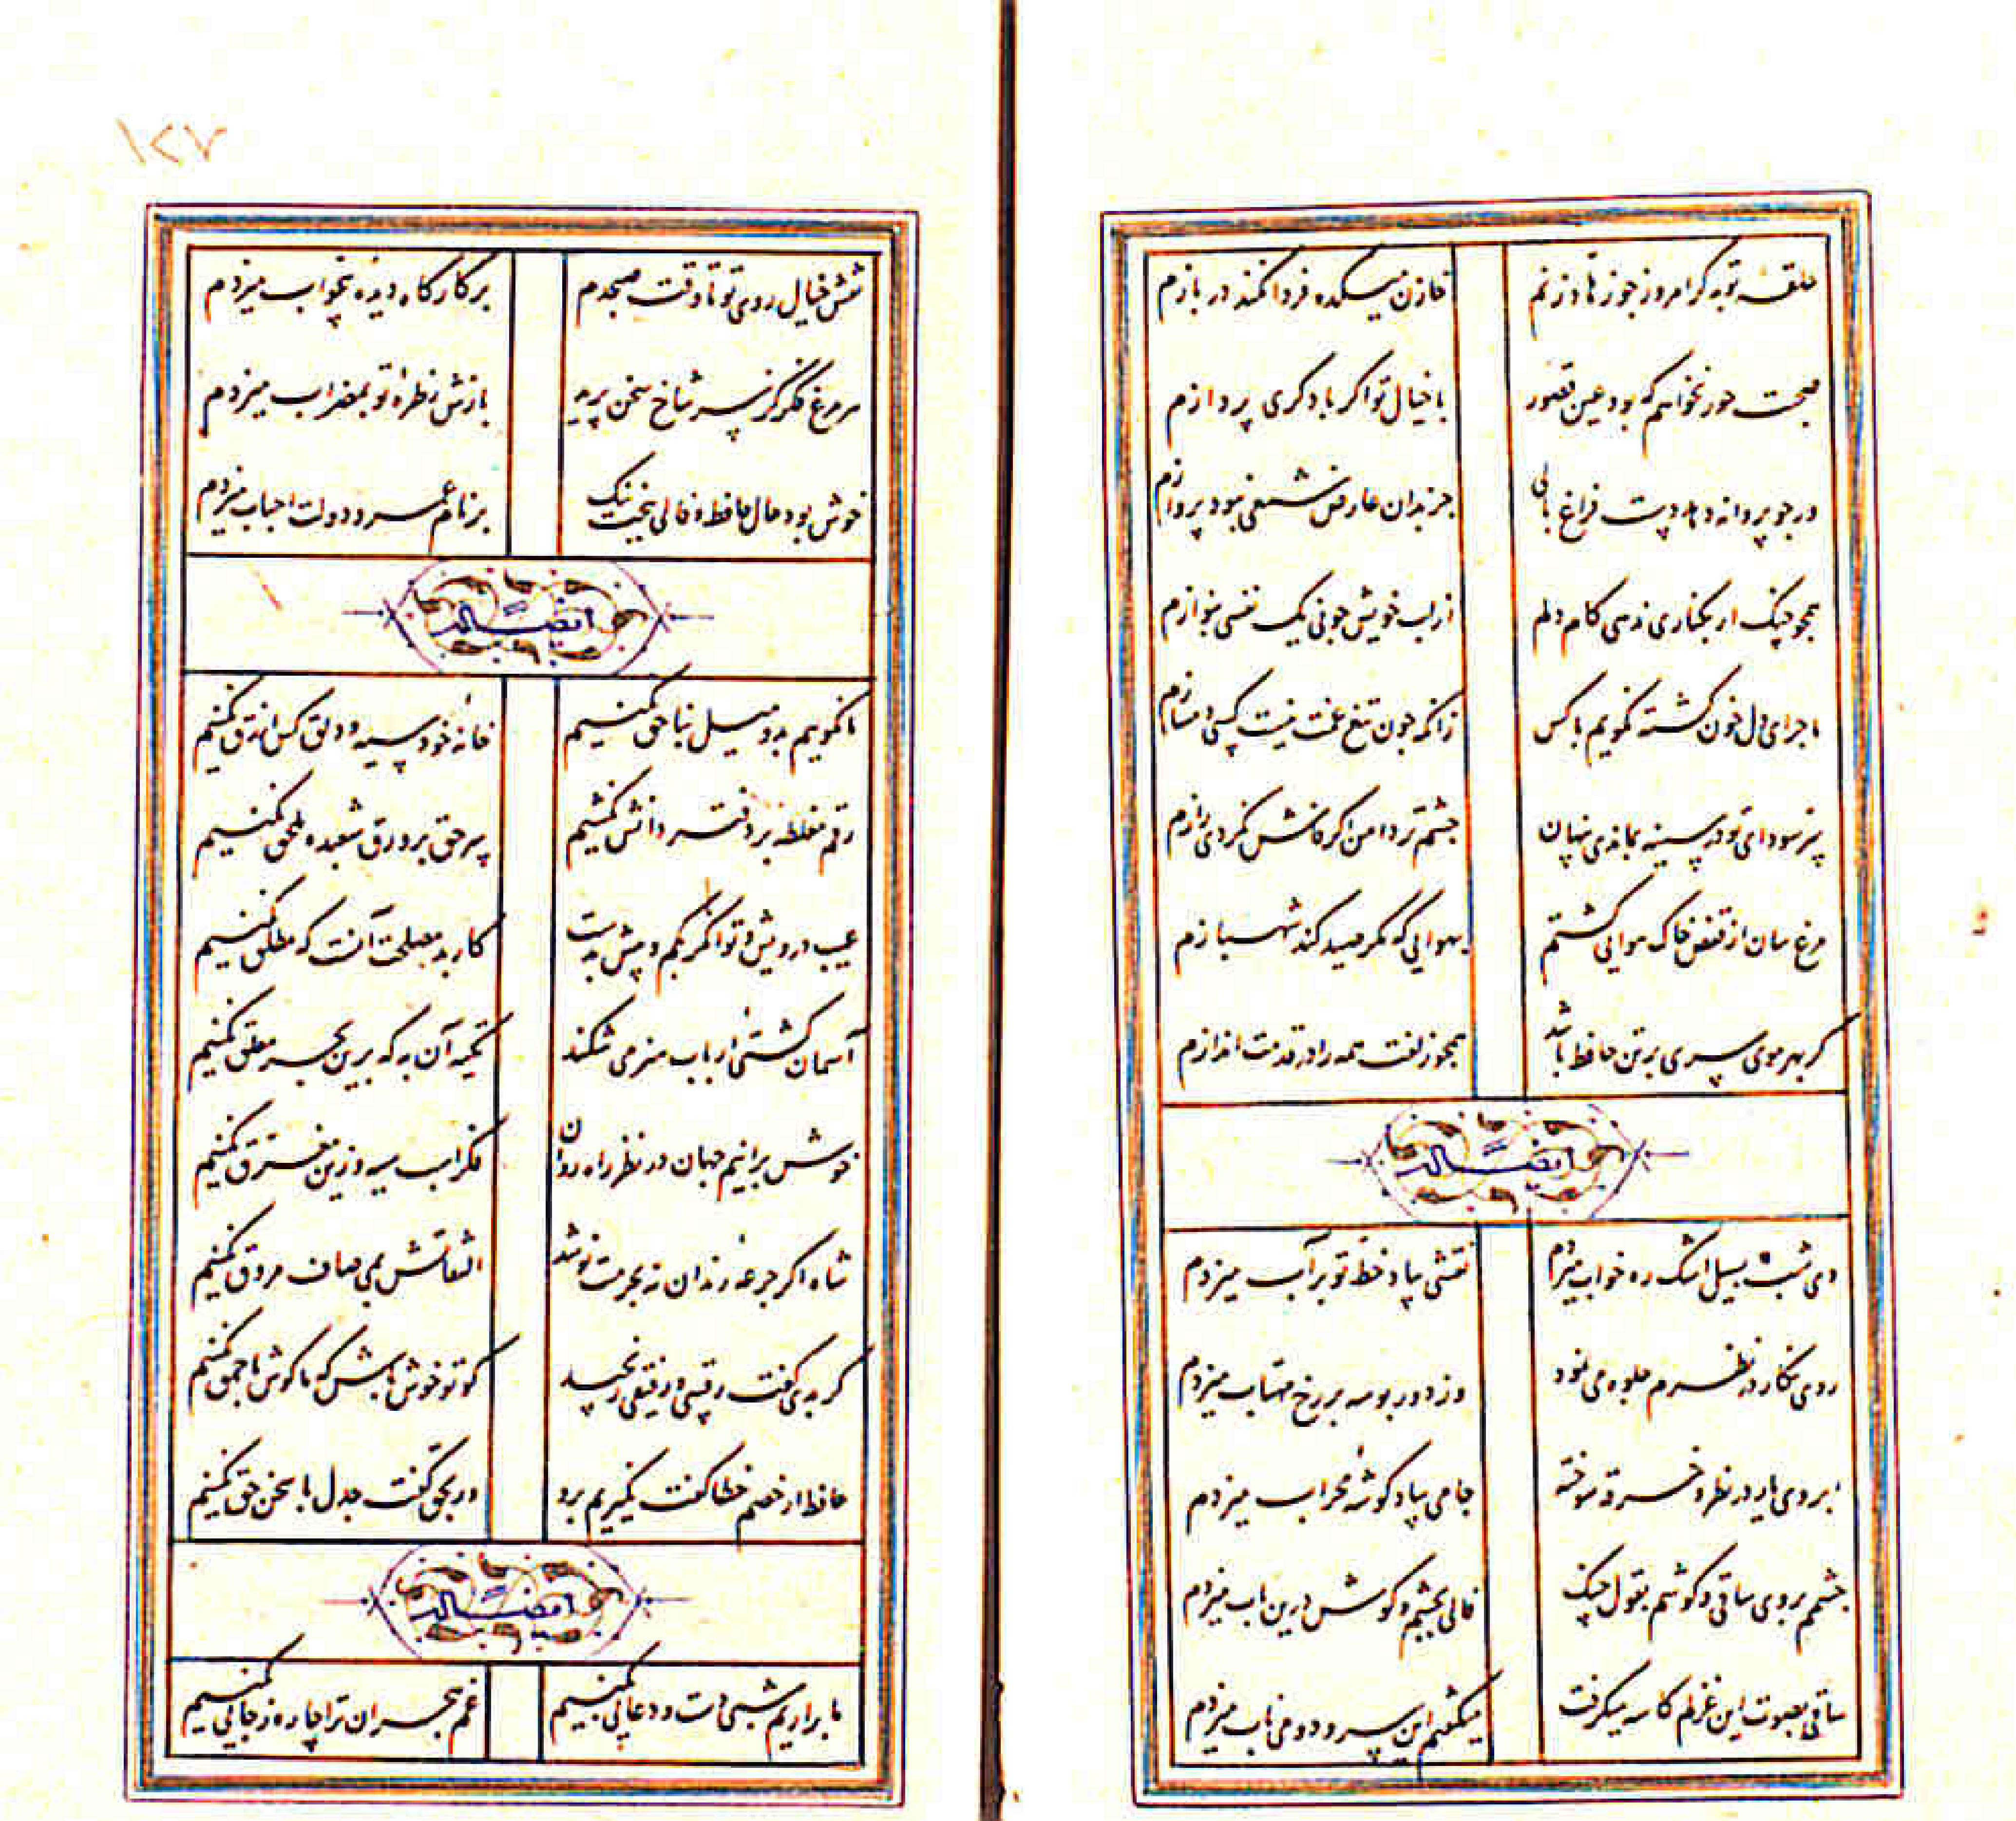 حلقه توبه گر امروز چو زهاد زنم
خازن میکده فردا نکند در بازم
صحبت حور نخواهم که بود عین قصور
با خیال تو اگر با دگری پردازم
ور چو پروانه دهد دست فراغ بالی
جز بدان عارض شمعی نبود پروازم
همچو چنک ار بکناری ندهی کام دلم
از لب خویش چو نی یک نفسی بنوازم
ماجرای دل خون گشته نگویم با کس
زانکه چون تیغ غمت نیست کسی دمسازم
سر سودای تو در سینه بماندی پنهان
چشم تر دامن اگر فاش نکردی رازم
مرغ سان از قفس خاک هوایی گشتم
بهوایی که مگر صید کند شهبازم
گر بهر موی سری بر تن حافظ باشد
همچو زلفت همه را در قدمت اندازم
ایضاله
دی شب بسیل اشک ره خواب میزدم
نقشی بیاد خط تو بر آب میزدم
روی نگار در نظرم جلوه می نمود
وز دور بوسه بر رخ مهتاب میزدم
ابروی یار در نظر و خرقه سوخته
جامی بیاد گوشهٔ محراب میزدم
چشمم بروی ساقی و گوشم بقول چنک
فالی بچشم و گوش درین باب میزدم
ساقی بصوت این غزلم کاسه میگرفت
میگفتم این سرود و می ناب میزدم
۱۲۷
نقش خیال روی تو تا وقت صبحدم
بر کارگاه دیده بخواب میزدم
هر مرغ فکر کز سر شاخ سخن پرید
بازش ز طره تو بمضراب میزدم
خوش بود حال حافظ و فالی ببخت نیک
بر نام عمر و دولت احباب میزدم
ایضاله
ما نگوییم بد و میل بناحق نکنیم
خانهٔ خود سیه و دلق کس ازرق نکنیم
رقم مغلطه بر دفتر دانش نکشیم
سر حق بر ورق شعبده ملحق نکنیم
عیب درویش و توانگر بکم و بیش بدست
کار بد مصلحت آنست که مطلق نکنیم
آسمان کشتی ارباب هنر می شکند
تکیه آن به که برین بحر معلق نکنیم
خوش برانیم جهان در نظر راه روان
فکر اسب سیه و زین مغرق نکنیم
شاه اگر جرعهٔ رندان نه بحرمت نوشد
التفاتش بمی صاف مروق نکنیم
گر بدی گفت رقیبی و رفیقی رنجید
گو تو خوش باش که ما گوش باحمق نکنیم
حافظ ار خصم خطا گفت نگیریم برو
ور بحق گفت جدل با سخن حق نکنیم
ایضاله
ما برآریم شبی دست و دعایی بکنیم
غم هجران ترا چاره ز جایی بکنیم